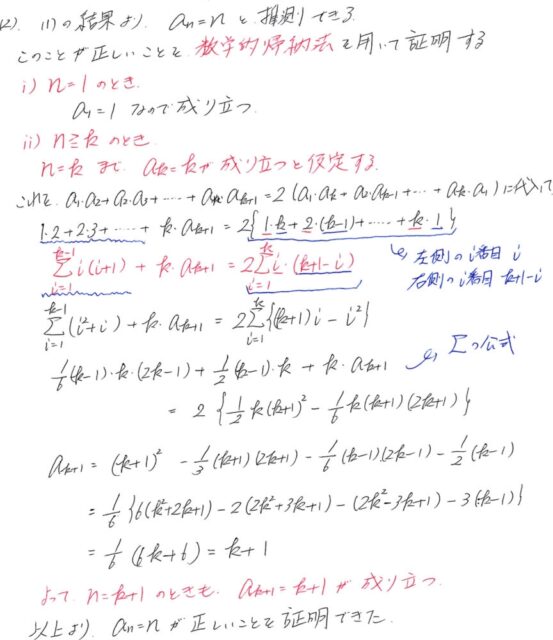 (2). (1)の結果より、an=nと推測できる
このことが正しいことを数学的帰納法を用いて証明する
i) n=1のとき、
a1=1なので成り立つ。
ii) n≧kのとき、
n=kまで ak=kが成り立つと仮定する。
これを、a1・a2+a2・a3+……+ak・ak+1=2(a1・ak+a2・ak-1+…+ak・a1)に代入して
1・2+2・3+……+k・ak+1=2{1・k+2・(k-1)+……+k・1}
Σ[i=1,k-1] i(i+1)+k・ak+1=2Σ[i=1,k] i・(k+1-i)
左側のi番目 i
右側のi番目 k+1-i
Σ[i=1,k-1] (i²+i)+k・ak+1=2Σ[i=1,k]{(k+1)i-i²}
1/6(k-1)・k・(2k-1)+1/2(k-1)・k+k・ak+1
Σの公式
=2{1/2k(k+1)²-1/6k(k+1)(2k+1)}
ak+1=(k+1)²-1/3(k+1)(2k+1)-1/6(k-1)(2k-1)-1/2(k-1)
=1/6{6(k²+2k+1)-2(2k²+3k+1)-(2k²-3k+1)-3(k-1)}
=1/6(6k+6)=k+1
よって、n=k+1のときも、ak+1=k+1が成り立つ。
以上より、an=nが正しいことを証明できた.